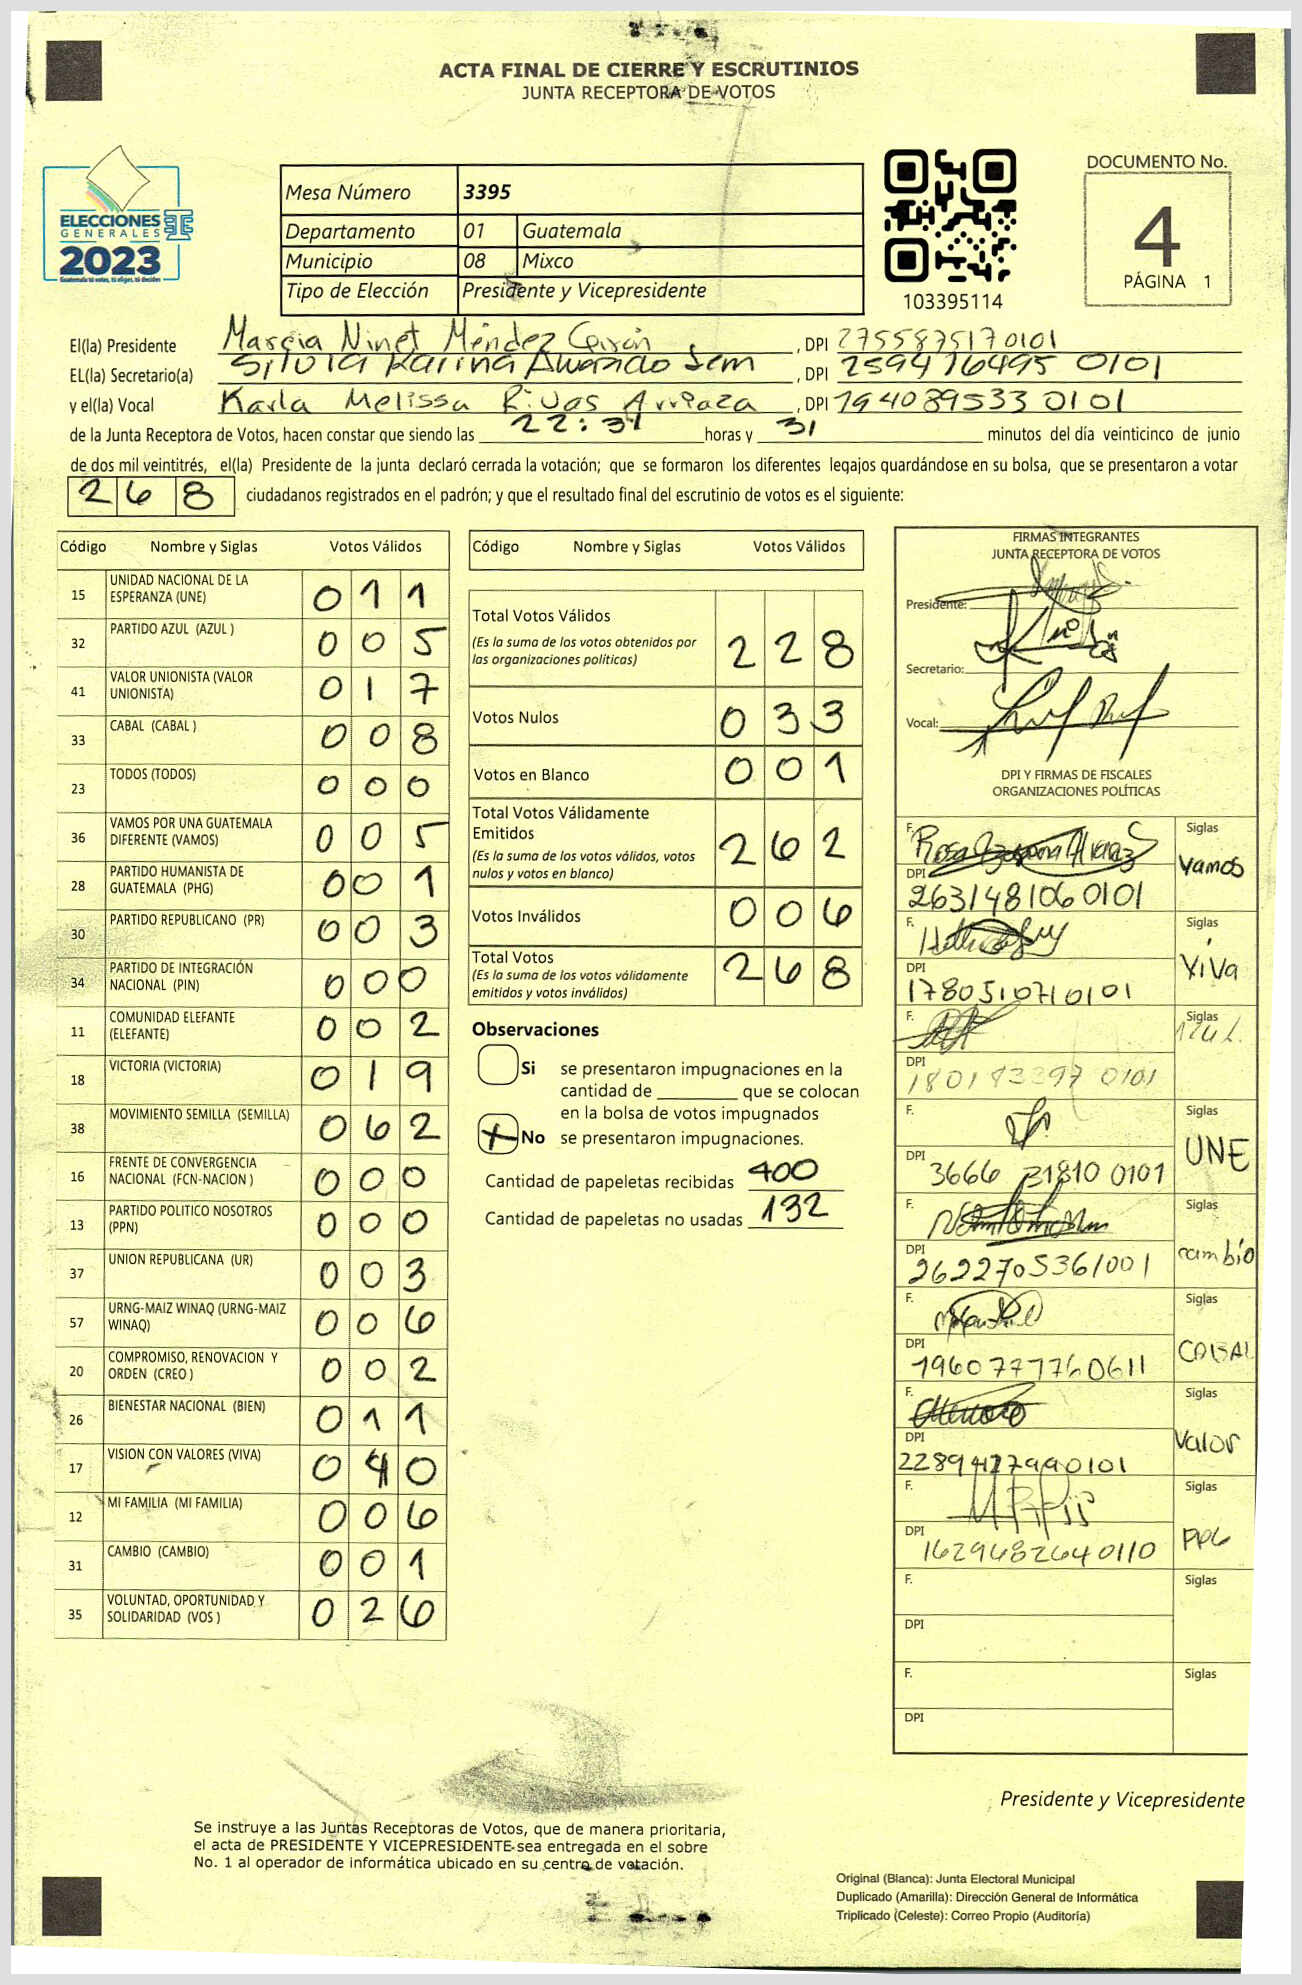 ACTA FINAL DE CIERRE Y ESCRUTINIOS
JUNTA RECEPTORA DE VOTOS
ELECCIONES
GENERALES
2023
Guatemala tú votas, tú eliges, tú decides
Mesa Número 3395
Departamento 01 Guatemala
Municipio 08 Mixco
Tipo de Elección Presidente y Vicepresidente
103395114
DOCUMENTO No.
4
PÁGINA 1
El(la) Presidente Marcia Ninet Méndez , DPI 2755875170101
EL(la) Secretario(a) Silvia Karina Alvarado , DPI 2594 76495 0101
y el(la) Vocal Karla Melissa Rivas Arriaza , DPI 194089533 0101
de la Junta Receptora de Votos, hacen constar que siendo las 22:31 horas y 31 minutos del día veinticinco de junio
de dos mil veintitrés, el(la) Presidente de la junta declaró cerrada la votación; que se formaron los diferentes legajos guardándose en su bolsa, que se presentaron a votar
268 ciudadanos registrados en el padrón; y que el resultado final del escrutinio de votos es el siguiente:
Código Nombre y Siglas Votos Válidos
15 UNIDAD NACIONAL DE LA ESPERANZA (UNE) 011
32 PARTIDO AZUL (AZUL ) 005
41 VALOR UNIONISTA (VALOR UNIONISTA) 017
33 CABAL (CABAL ) 008
23 TODOS (TODOS) 000
36 VAMOS POR UNA GUATEMALA DIFERENTE (VAMOS) 005
28 PARTIDO HUMANISTA DE GUATEMALA (PHG) 001
30 PARTIDO REPUBLICANO (PR) 003
34 PARTIDO DE INTEGRACIÓN NACIONAL (PIN) 000
11 COMUNIDAD ELEFANTE (ELEFANTE) 002
18 VICTORIA (VICTORIA) 019
38 MOVIMIENTO SEMILLA (SEMILLA) 062
16 FRENTE DE CONVERGENCIA NACIONAL (FCN-NACION ) 000
13 PARTIDO POLITICO NOSOTROS (PPN) 000
37 UNION REPUBLICANA (UR) 003
57 URNG-MAIZ WINAQ (URNG-MAIZ WINAQ) 006
20 COMPROMISO, RENOVACION Y ORDEN (CREO ) 002
26 BIENESTAR NACIONAL (BIEN) 011
17 VISION CON VALORES (VIVA) 040
12 MI FAMILIA (MI FAMILIA) 006
31 CAMBIO (CAMBIO) 001
35 VOLUNTAD, OPORTUNIDAD Y SOLIDARIDAD (VOS ) 026
Código Nombre y Siglas Votos Válidos
Total Votos Válidos 228
(Es la suma de los votos obtenidos por
las organizaciones políticas)
Votos Nulos 033
Votos en Blanco 001
Total Votos Válidamente
Emitidos 262
(Es la suma de los votos válidos, votos
nulos y votos en blanco)
Votos Inválidos 006
Total Votos 268
(Es la suma de los votos válidamente
emitidos y votos inválidos)
Observaciones
Si se presentaron impugnaciones en la
cantidad de ________ que se colocan
en la bolsa de votos impugnados
No se presentaron impugnaciones.
Cantidad de papeletas recibidas 400
Cantidad de papeletas no usadas 132
FIRMAS INTEGRANTES
JUNTA RECEPTORA DE VOTOS
Presidente:
Secretario:
Vocal:
DPI Y FIRMAS DE FISCALES
ORGANIZACIONES POLÍTICAS
F. Siglas Vamos
DPI 2631481060101
F. Siglas Viva
DPI 1780510710101
F. Siglas
DPI
F. Siglas UNE
DPI 3666 31810 0101
F. Siglas cambio
DPI 2622705361001
F. Siglas CABAL
DPI 1960777760611
F. Siglas Valor
DPI
F. Siglas
DPI 1629482640110
F. Siglas
DPI
F. Siglas
DPI
Presidente y Vicepresidente
Se instruye a las Juntas Receptoras de Votos, que de manera prioritaria,
el acta de PRESIDENTE Y VICEPRESIDENTE sea entregada en el sobre
No. 1 al operador de informática ubicado en su centro de votación.
Original (Blanca): Junta Electoral Municipal
Duplicado (Amarilla): Dirección General de Informática
Triplicado (Celeste): Correo Propio (Auditoría)